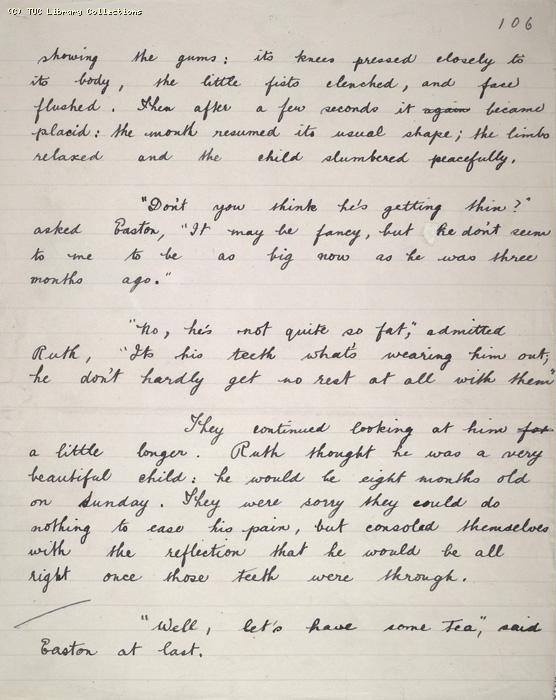 (C) TUC Library Collections
106
showing the gums: its knees pressed closely to
its body, the little fists clenched, and face
flushed. Then after a few seconds it again became
placid: the mouth resumed its usual shape; the limbs
relaxed and the child slumbered peacefully.
"Don't you think he's getting thin?"
asked Easton, "It may be fancy, but he don't seem
to me to be as big now as he was three
months ago."
"No, he's not quite so fat," admitted
Ruth, "It's his teeth what's wearing him out;
he don't hardly get no rest at all with them"
They continued looking at him for
a little longer. Ruth thought he was a very
beautiful child: he would be eight months old
on Sunday. They were sorry they could do
nothing to ease his pain, but consoled themselves
with the reflection that he would be all
right once those teeth were through.
"Well, let's have some tea", said
Easton at last.